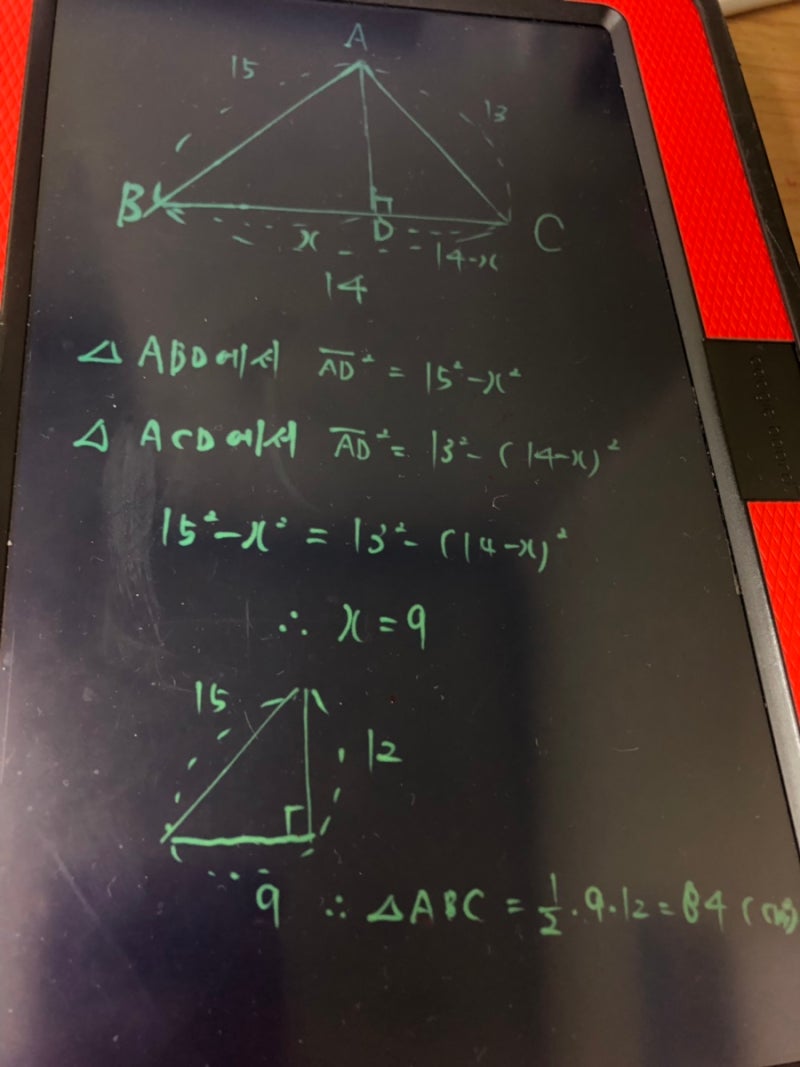 A
15
13
B
D
C
x
14-x
14
△ ABD에서 AD̅² = 15²-x²
△ ACD에서 AD̅² = 13²-(14-x)²
15²-x² = 13²-(14-x)²
∴ x=9
15
12
9
∴ △ABC = 1/2·9·12 = 84 (cm²)